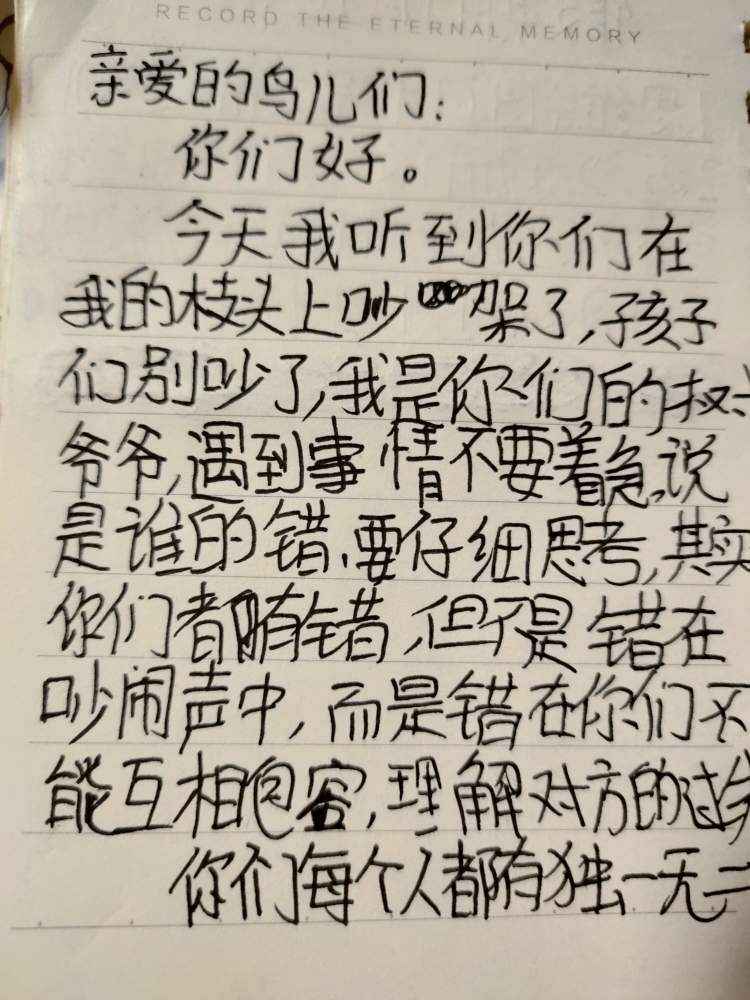 RECORD THE ETERNAL MEMORY
亲爱的鸟儿们：
你们好。
今天我听到你们在
我的枝头上吵架了，孩子
们别吵了，我是你们的
爷爷，遇到事情不要着急。说
是谁的错、要仔细思考，其实
你们都有错，但不是错在
吵闹声中，而是错在你们不
能互相包容，理解对方的过
你们每个人都有独一无二